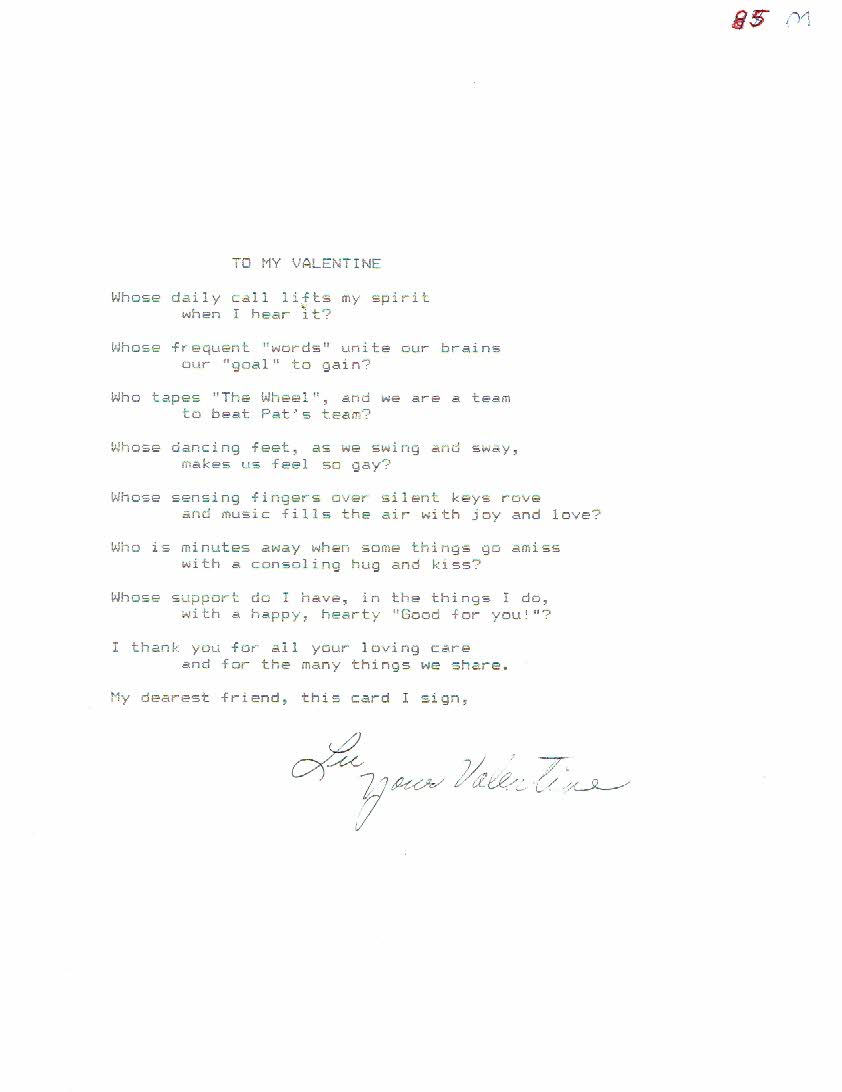 85 M
TO MY VALENTINE
Whose daily call lifts my spirit
when I hear it?
Whose frequent "words" unite our brains
our "goal" to gain?
Who tapes "The Wheel", and we are a team
to beat Pat's team?
Whose dancing feet, as we swing and sway,
makes us feel so gay?
Whose sensing fingers over silent keys rove
and music fills the air with joy and love?
Who is minutes away when some things go amiss
with a consoling hug and kiss?
Whose support do I have, in the things I do,
with a happy, hearty "Good for you!"?
I thank you for all your loving care
and for the many things we share.
My dearest friend, this card I sign,
Lu
Your Valentine